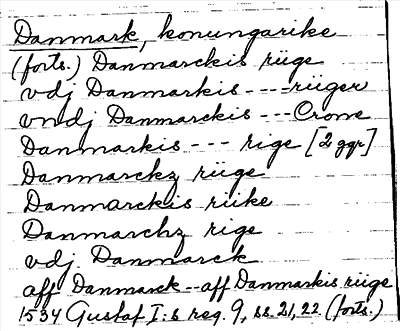 Danmark, konungarike
(forts.) Danmarckis rüge
vdj Danmarkis ---- rüger
vndj Danmarckis --- Crone
Danmarkis --- rige [2 ggr]
Danmarckz rüge
Danmarckis rüke
Danmarchz rige
vdj Danmarck
aff Danmarck -- aff Danmarkis rüge
1534 Gustaf I:s reg. 9, ss. 21, 22 (forts.)